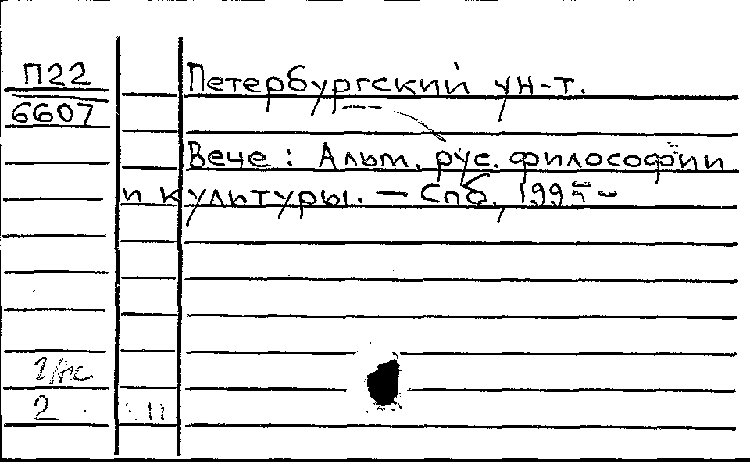 П22
6607
Петербургский ун-т.
Вече : Альм. рус. философии
и культуры. — Спб., 1995 –
2